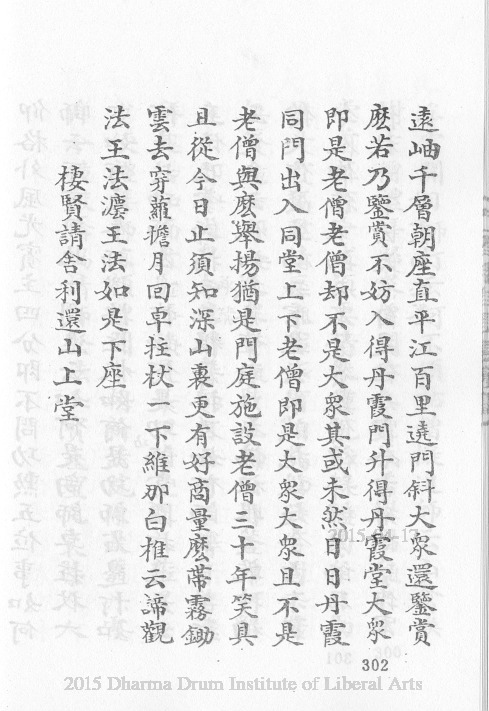 遠岫千層朝座直平江百里遶門斜大衆還鑒賞
麽若乃鑒賞不妨入得丹霞門升得丹霞堂大衆
即是老僧老僧却不是大衆其或未然日日丹霞
同門出入同堂上下老僧即是大衆大衆且不是
老僧與麽舉揚猶是門庭施設老僧三十年笑具
且從今日止須知深山裏更有好商量麽帶霧鋤
雲去穿蘿擔月回卓拄杖一下維那白椎云諦觀
法王法灋王法如是下座
棲賢請舍利還山上堂
302
2015-04-17
2015 Dharma Drum Institute of Liberal Arts